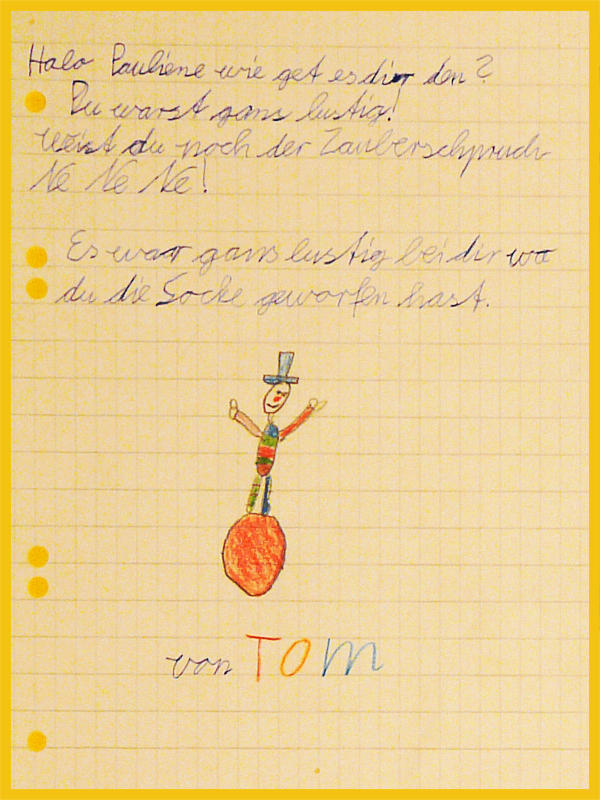 Halo Pauliene wie get es dir den?
Du warst gans lustig!
Weist du noch der Zauberschpruch
Ne Ne Ne!
Es waar gans lustig bei dir wo
du die Socke geworfen hast.
von TOM